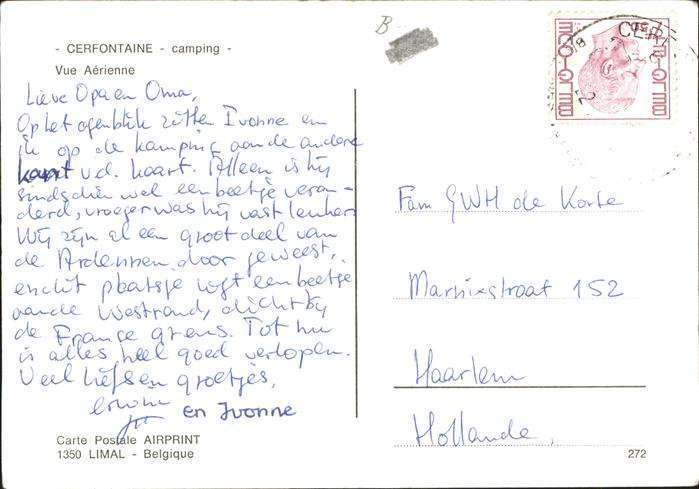 - CERFONTAINE - camping -
Vue Aérienne
B
Lieve Opa en Oma,
Op het ogenblik zitten Ivonne en
ik op de kamping aan de andere
kant v.d. kaart. Alleen is hij
sindsdien wel een beetje veran-
derd, vroeger was hij vast leuker
Wij zijn al een groot deel van
de Ardennen door geweest,
en dit plaatsje ligt een beetje
aan de Westrand, dicht bij
de Franse grens. Tot nu
is alles heel goed verlopen.
Veel liefs en groetjes,
en Ivonne
Carte Postale AIRPRINT
1350 LIMAL - Belgique
BELGIE-BELGIQUE
CERF
Fam GWH de Korte
Marnixstraat 152
Haarlem
Hollande,
272